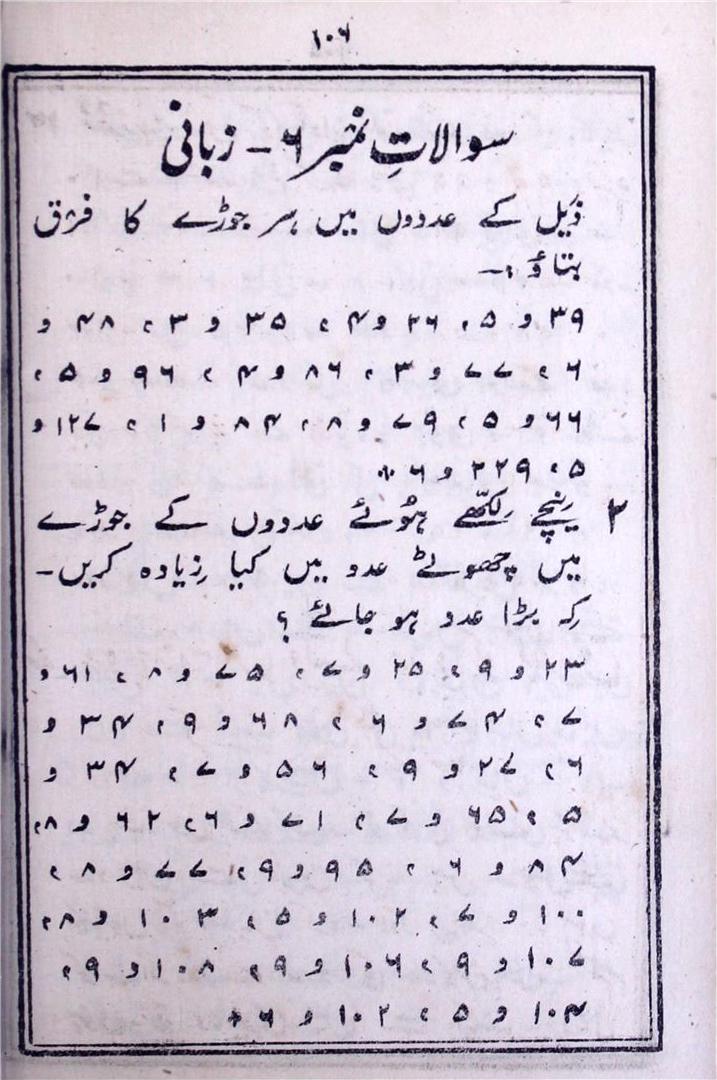 ۱۰۶
سوالاتِ نمبر ۶ - زبانی
ذیل کے عددوں میں ہر جوڑے کا فرق
بتاؤ :-
۳۹ و ۵، ۲۶ و ۴، ۳۵ و ۳، ۴۸ و
۶، ۷۷ و ۳، ۸۶ و ۴، ۹۶ و ۵،
۶۶ و ۵، ۹۷ و ۸، ۸۴ و ۱، ۱۲۷ و
۵، ۲۲۹ و ۶ *
۲ نیچے لکھّے ہوُئے عددوں کے جوڑے
میں چھوٹے عدد میں کیا زیادہ کریں -
کہ بڑا عدد ہو جائے ؟
۲۳ و ۹، ۲۵ و ۷، ۷۵ و ۸، ۶۱ و
۷، ۷۴ و ۶، ۶۸ و ۹، ۳۴ و
۶، ۲۷ و ۹، ۵۶ و ۷، ۳۴ و
۵، ۶۵ و ۷، ۷۱ و ۶، ۶۲ و ۸،
۸۴ و ۶، ۹۵ و ۹، ۷۷ و ۸،
۱۰۰ و ۷، ۱۰۲ و ۵، ۱۰۳ و ۸،
۱۰۷ و ۹، ۱۰۶ و ۹، ۱۰۸ و ۹،
۱۰۴ و ۵، ۱۰۲ و ۶ *